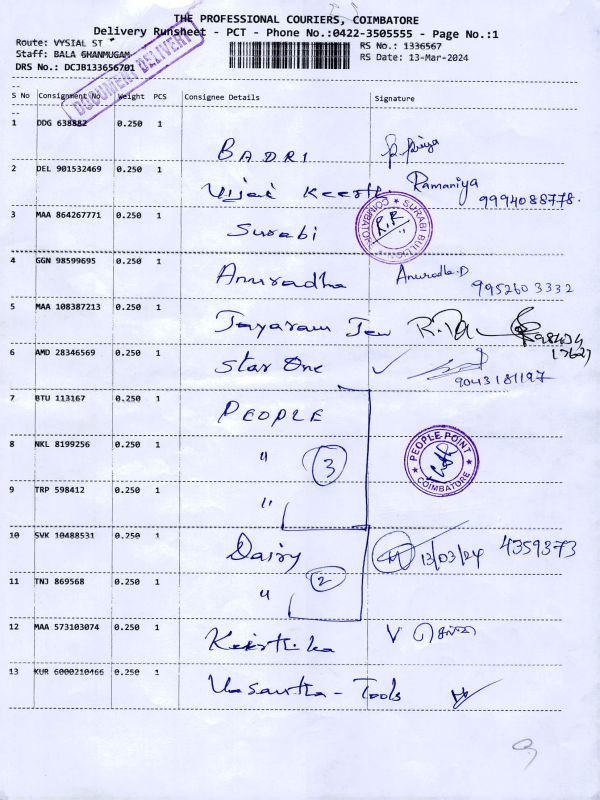 THE PROFESSIONAL COURIERS, COIMBATORE
Delivery Runsheet - PCT - Phone No.:0422-3505555 - Page No.:1
Route: VYSIAL ST
RS No.: 1336567
Staff: BALA SHANMUGAM
RS Date: 13-Mar-2024
DRS No.: DCJB133656701
DOCUMENT DELIVERY
S No Consignment No Weight PCS Consignee Details Signature
1 DDG 638882 0.250 1 BADRI
2 DEL 901532469 0.250 1 Vijai Keerth Ramaniya 9994088778.
3 MAA 864267771 0.250 1 Surabi R.R
4 GGN 98599695 0.250 1 Anuradha Anuradha.D 995260 3332
5 MAA 108387213 0.250 1 Jayaram
6 AMD 28346569 0.250 1 Star One ✓ 9043181197
7 BTU 113167 0.250 1 PEOPLE
8 NKL 8199256 0.250 1 " 3 PEOPLE POINT COIMBATORE
9 TRP 598412 0.250 1 "
10 SVK 10488531 0.250 1 Dairy 13/03/24 4359373
11 TNJ 869568 0.250 1 " 2
12 MAA 573103074 0.250 1 Keerthika V
13 KUR 6000210466 0.250 1 Vasantha - Tools